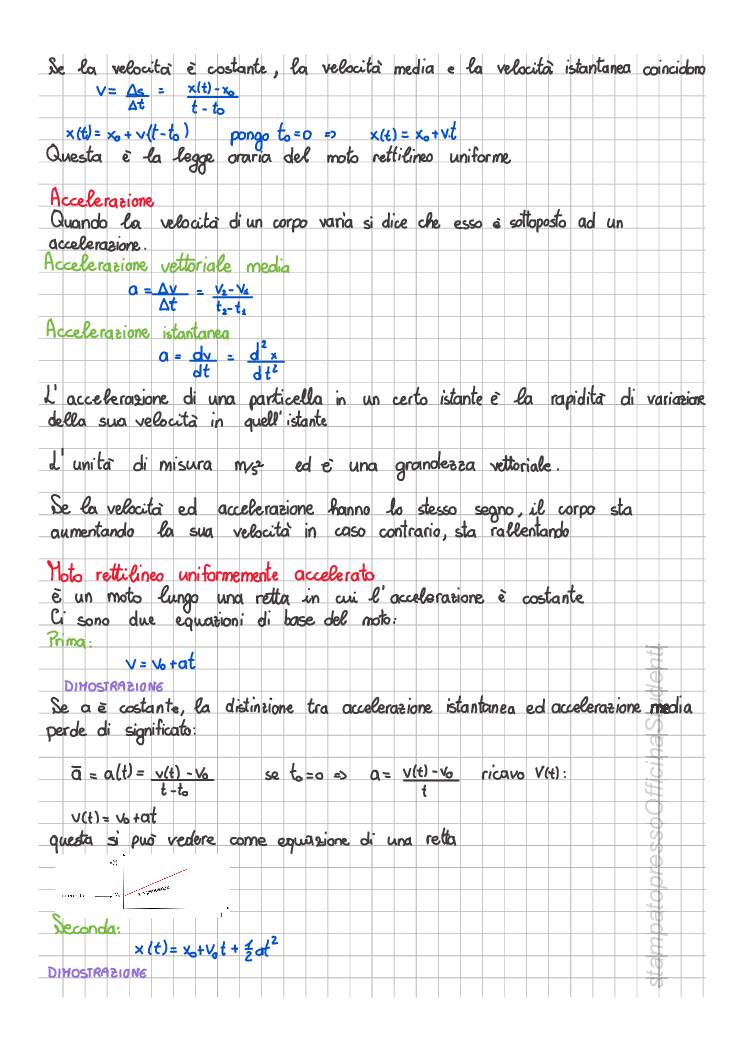 Se la velocità è costante, la velocità media e la velocità istantanea coincidono
v = Δs/Δt = (x(t)-x₀)/(t-t₀)
x(t) = x₀ + v(t-t₀) pongo t₀=0 ⇒ x(t) = x₀+v.t
Questa è la legge oraria del moto rettilineo uniforme
Accelerazione
Quando la velocità di un corpo varia si dice che esso è sottoposto ad un
accelerazione.
Accelerazione vettoriale media
a = Δv/Δt = (v₂-v₁)/(t₂-t₁)
Accelerazione istantanea
a = dv/dt = d²x/dt²
L'accelerazione di una particella in un certo istante è la rapidità di variazione
della sua velocità in quell'istante
L'unità di misura m/s² ed è una grandezza vettoriale.
Se la velocità ed accelerazione hanno lo stesso segno, il corpo sta
aumentando la sua velocità in caso contrario, sta rallentando
Moto rettilineo uniformemente accelerato
è un moto lungo una retta in cui l'accelerazione è costante
Ci sono due equazioni di base del moto:
Prima:
v = v₀+at
DIMOSTRAZIONE
Se a è costante, la distinzione tra accelerazione istantanea ed accelerazione media
perde di significato:
a̅ = a(t) = (v(t)-v₀)/(t-t₀) se t₀=0 ⇒ a = (v(t)-v₀)/t ricavo V(t):
v(t) = v₀+at
questa si può vedere come equazione di una retta
Seconda:
x(t) = x₀+v₀t+½at²
DIMOSTRAZIONE
stampatopressoOfficinaStudenti